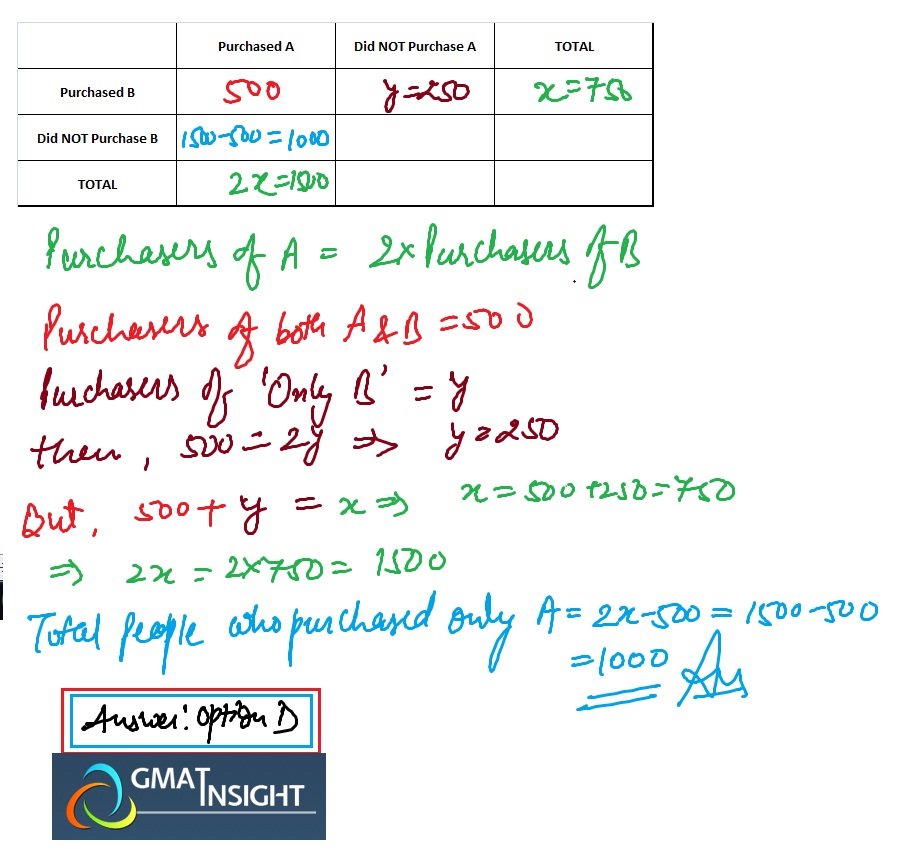 Purchased A Did NOT Purchase A TOTAL
Purchased B 500 y=250 x=750
Did NOT Purchase B 1500-500=1000
TOTAL 2x=1500
Purchasers of A = 2x Purchasers of B
Purchasers of both A & B = 500
Purchasers of 'Only B' = y
then, 500 = 2y ⇒ y=250
But, 500+y = x ⇒ x=500+250=750
⇒ 2x = 2x750 = 1500
Total People who purchased only A = 2x-500 = 1500-500
=1000 Ans
Answer: option D
GMATINSIGHT